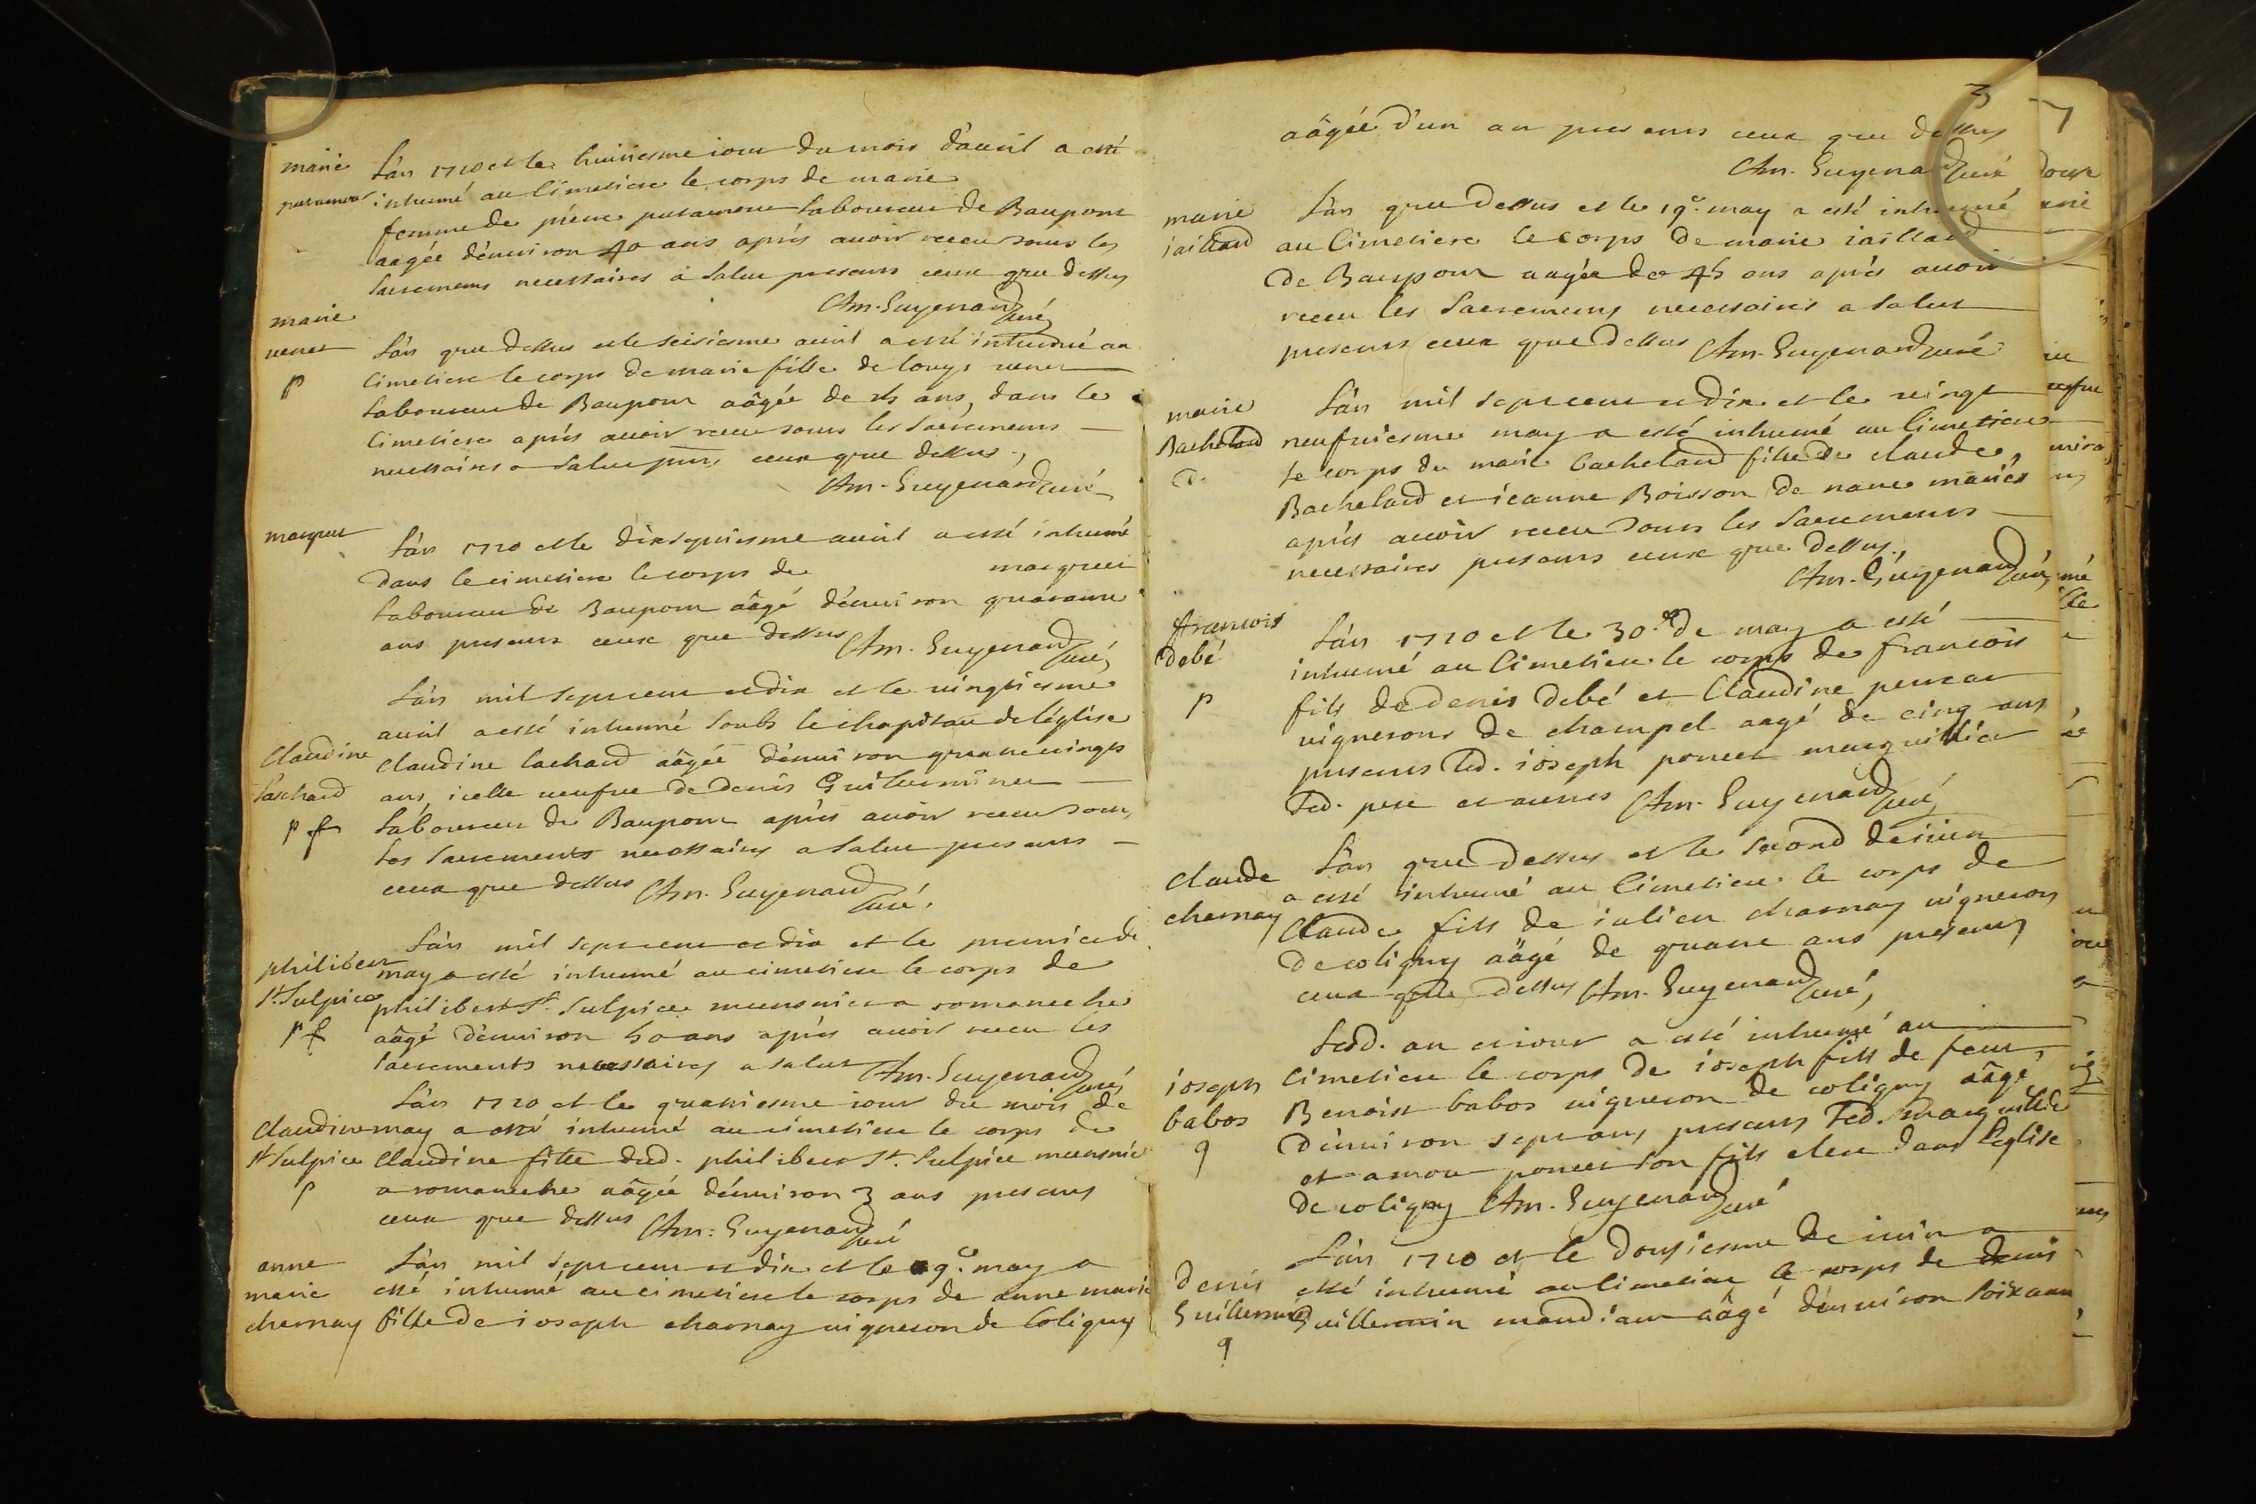 marie
L'an 1710 et le huitiesme iour du mois d'auril a esté
inhumé au Cimetiere le corps de marie
femme de pierre laboureur de Baupont
aagée d'enuiron 40 ans aprés auoir receu tous les
Sacremens necessaires à Salut presens ceux que dessus
Am. Guyenard curé
marie
uenet
L'an que dessus et le seisiesme auril a esté inhumé au
Cimetiere le corps de marie fille de louys uenet
p
laboureur de Baupont aâgée de ans, dans le
Cimetiere aprés auoir receu tous les Sacremens
necessaires a Salut pnts ceux que dessus.,
Am. Guyenard curé
marguet
L'an 1710 et le dixseptiesme auril a esté inhumé
dans le cimetiere le corps de marguet
laboureur de Baupont aâgé d'enuiron quarante
ans presens ceux que dessus Am. Guyenard curé
L'an mil sept cent et dix et le uingtiesme
auril a esté inhumé Soubs le chapitau de l'église
Claudine
Claudine lachard aâgée d'enuiron quatre uingts
Laschard
ans, icelle ueufue de denis Guillerminet
p f
laboureur de Baupont aprés auoir receu tous
les Sacrements necessaires a Salut presens
ceux que dessus Am. Guyenard curé.
L'an mil sept cent et dix et le premier de
philibert
may a esté inhumé au cimetiere le corps de
St. Sulpice
philibert St. Sulpice meusnier a romaneche
p f
aâgé d'enuiron 50 ans aprés auoir receu les
Sacrements necessaires a Salut Am. Guyenard curé
L'an 1710 et le quatriesme iour du mois de
Claudine
may a esté inhumé au cimetiere le corps de
St Sulpice
Claudine fille dud. philibert St. Sulpice meusnier
p
a romaneche aâgée d'enuiron 3 ans presens
ceux que dessus Am: Guyenard curé
anne
L'an mil sept cent et dix et le 9e. may a
marie
esté inhumé au cimetiere le corps de anne marie
charnay
fille de ioseph charnay uigneron de Coligny
3
aâgée d'un an presens ceux que dessus
Am. Guyenard curé
marie
L'an que dessus et le 19e. may a esté inhumé
iaillard
au Cimetiere le corps de marie iaillard
de Baupont aagée de 45 ans aprés auoir
receu les Sacremens necessaires a Salut
presens ceux que dessus Am. Guyenard curé
marie
L'an mil sept cent et dix et le uingt
Bachelard
neufuiesme may a esté inhumé au Cimetiere
le corps de marie bachelard fille de claude
Bachelard et ieanne Boisson de mariés
aprés auoir receu tous les Sacremens
necessaires presens ceux que dessus.,
Am. Guyenard curé
francois
L'an 1710 et le 30.e de may a esté
debé
inhumé au Cimetiere le corps de francois
p
fils de denis debé et Claudine
uignerons de champel aagé de cinq ans
presens led. ioseph poncet marguillier
led. pere et autres Am. Guyenard curé
L'an que dessus et le second de iuin
claude
a esté inhumé au Cimetiere le corps de
charnay
Claude fils de iulien charnay uigneron
de coligny aâgé de quatre ans presens
ceux que dessus Am. Guyenard curé
Led. an et iour a esté inhumé au
ioseph
Cimetiere le corps de ioseph fils de feu
babos
Benoist babos uigneron de coligny aâgé
d'enuiron sept ans, presens led. marguillier
et amour poncet son fils clerc dans l'église
de coligny Am. Guyenard curé
L'an 1710 et le dousiesme de iuin a
denis
esté inhumé au Cimetiere le corps de denis
Guillermin
Guillermin mandiant aâgé d'enuiron Soixante